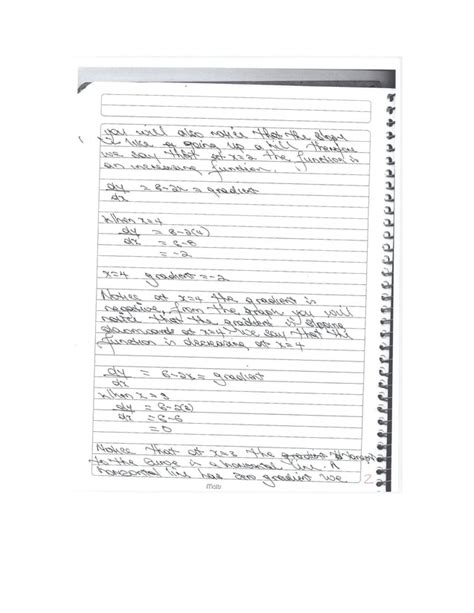 you will also notice that the slope
like going up a hill therefore
we say that at x=2 the function is
an increasing function.
dy = 6-2x = gradient
dx
When x=4
dy = 6-2(4)
dx = 6-8
= -2
x=4 gradient = -2
Notice at x=4 the gradient is
negative, from the graph you will
notice that the gradient is sloping
downwards at x=4. We say that the
function is decreasing at x=4
dy = 6-2x = gradient
dx
When x=3
dy = 6-2(3)
dx = 6-6
= 0
Notice that at x=3 the tangent
to the curve is a horizontal line. A
horizontal line has zero gradient we
2